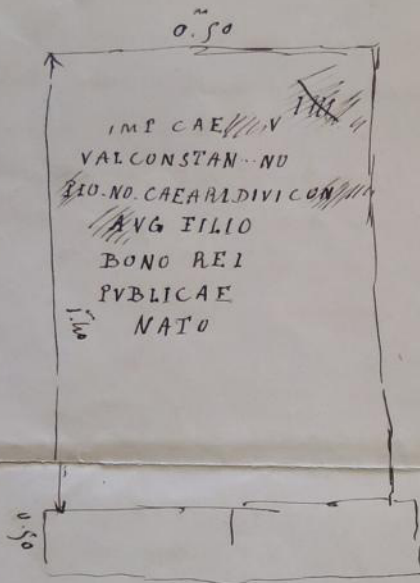 m
0.50
IMP CAE V
VAL CONSTAN..NO
IIO.NO.CAEARI.DIVI CON
AVG FILIO
BONO REI
PVBLICAE
NATO
1.40
0.50